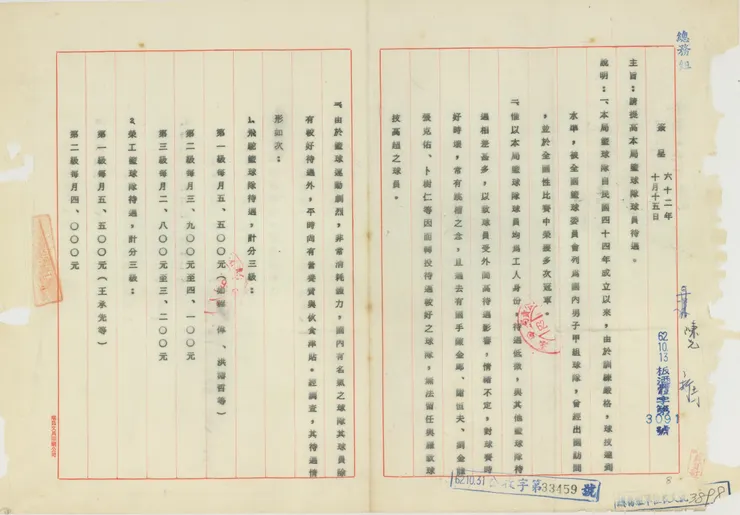 總務組
簽呈 六十二年十月十五日
主旨：請提高本局籃球隊球員待遇。
說明：一、本局籃球隊自民國四十四年成立以來，由於訓練嚴格，球技達到
水準，被全國籃球委員會列為國內男子甲組球隊，曾經出國訪問
，並於全國性比賽中榮獲多次冠軍。
二、惟以本局籃球隊球員均為工人身份，待遇低微，與其他籃球隊待
遇相差甚多，以致球員受外間高待遇影響，情緒不定，對球賽時
好時壞，常有跳槽之念，且過去有國手羅金郎、謝恒夫、劉金
張克佑、卜樹仁等因而轉投待遇較好之球隊，無法留任與羅致球
技高超之球員。
三、由於籃球運動劇烈，非常消耗體力，國內有名氣之球隊其球員除
有較好待遇外，平時尚有營養費與伙食津貼。經調查，其待遇情
形如次：
1.飛駝籃球隊待遇，計分三級：
第一級每月五、五〇〇元（ 洪 等）
第二級每月三、九〇〇元至四、一〇〇元
第三級每月二、八〇〇元至三、二〇〇元
2.榮工籃球隊待遇，計分三級：
第一級每月五、五〇〇元（王承先等）
第二級每月四、〇〇〇元
62.10.13
3091 號
62.10.31 收字第33459號
3898
8